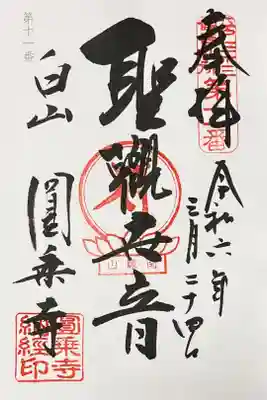 奉拝
令和六年
三月二十四日
聖觀世音
第十一番
白山
圓乗寺
圓乗寺
納経印